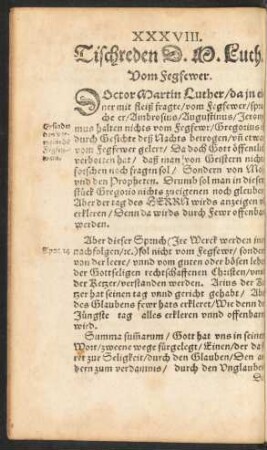 XXXVIII.
Tischreden D. M. Luth.
Vom Fegfewer.
Doctor Martin Luther / da jn ei
ner mit fleiß fragte / vom Fegfewer / spra
che er / Ambrosius / Augustinus / Jerony
mus halten nichts vom Fegfewr / Gregorius
durch Gesichte deß Nachts betrogen / vñ etwa
vom Fegfewer gelert / Da doch Gott öffentli
verbotten hat / daß man von Geistern nicht
forschen noch fragen sol / Sondern von Mo
vnd den Propheten. Drumb sol man in diesem
stück Gregorio nichts zueignen noch glauben
Aber der tag des HERRN wirds anzeigen vñ
erkleren / Denn da wirds durch Fewr offenbar
werden.
Aber dieser Spruch (Jre Werck werden jnen
Apoc. 14
nachfolgen / ꝛc.) sol nicht vom Fegfewr / sonder
von der leere / vnnd vom guten oder bösen lebe
der Gottseligen rechtschaffenen Christen / vnd
der Ketzer / verstanden werden. Arius der Ke
tzer hat seinen tag vnd gericht gehabt / Aber
des Glaubens fewr hats erkleret / Wie denn der
Jüngste tag alles erkleren vnnd offenbaren
wird.
Summa sum̃arum / Gott hat vns in seinem
Wort / zweene wege fürgelegt / Einen / der da
zur Seligkeit / durch den Glauben / Den an
dern zum verdamnis / durch den Vnglauben